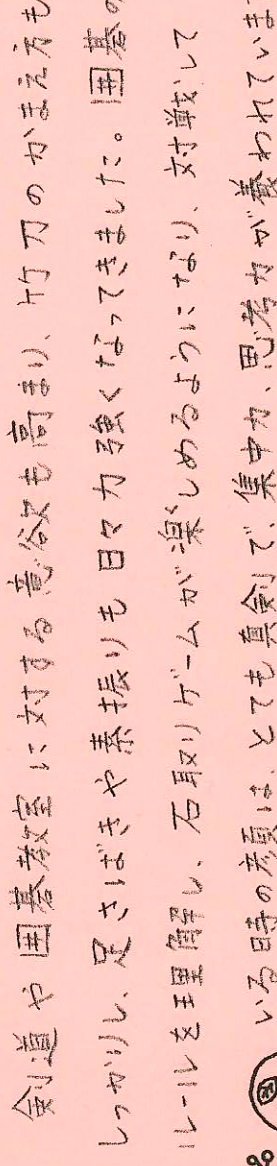 剣道や囲碁教室に対する意欲も高まり、竹刀のかまえ方も
しっかりし、足さばきや素振りも日々力強くなってきました。囲碁の
ルールを理解し、石取りゲームが楽しめるようになり、対戦して
いる時の顔は、とても真剣で、集中力、思考力が養われていま